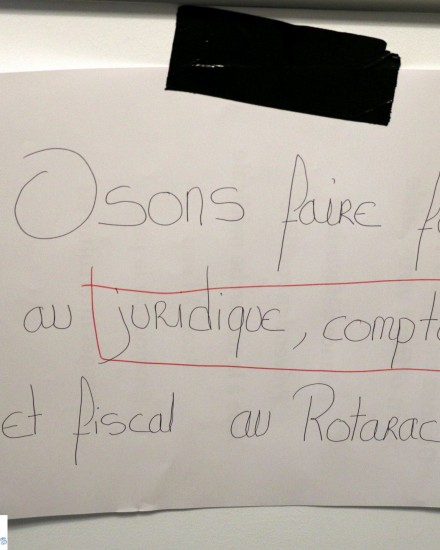 Osons faire
au juridique, compt
et fiscal au Rotarac